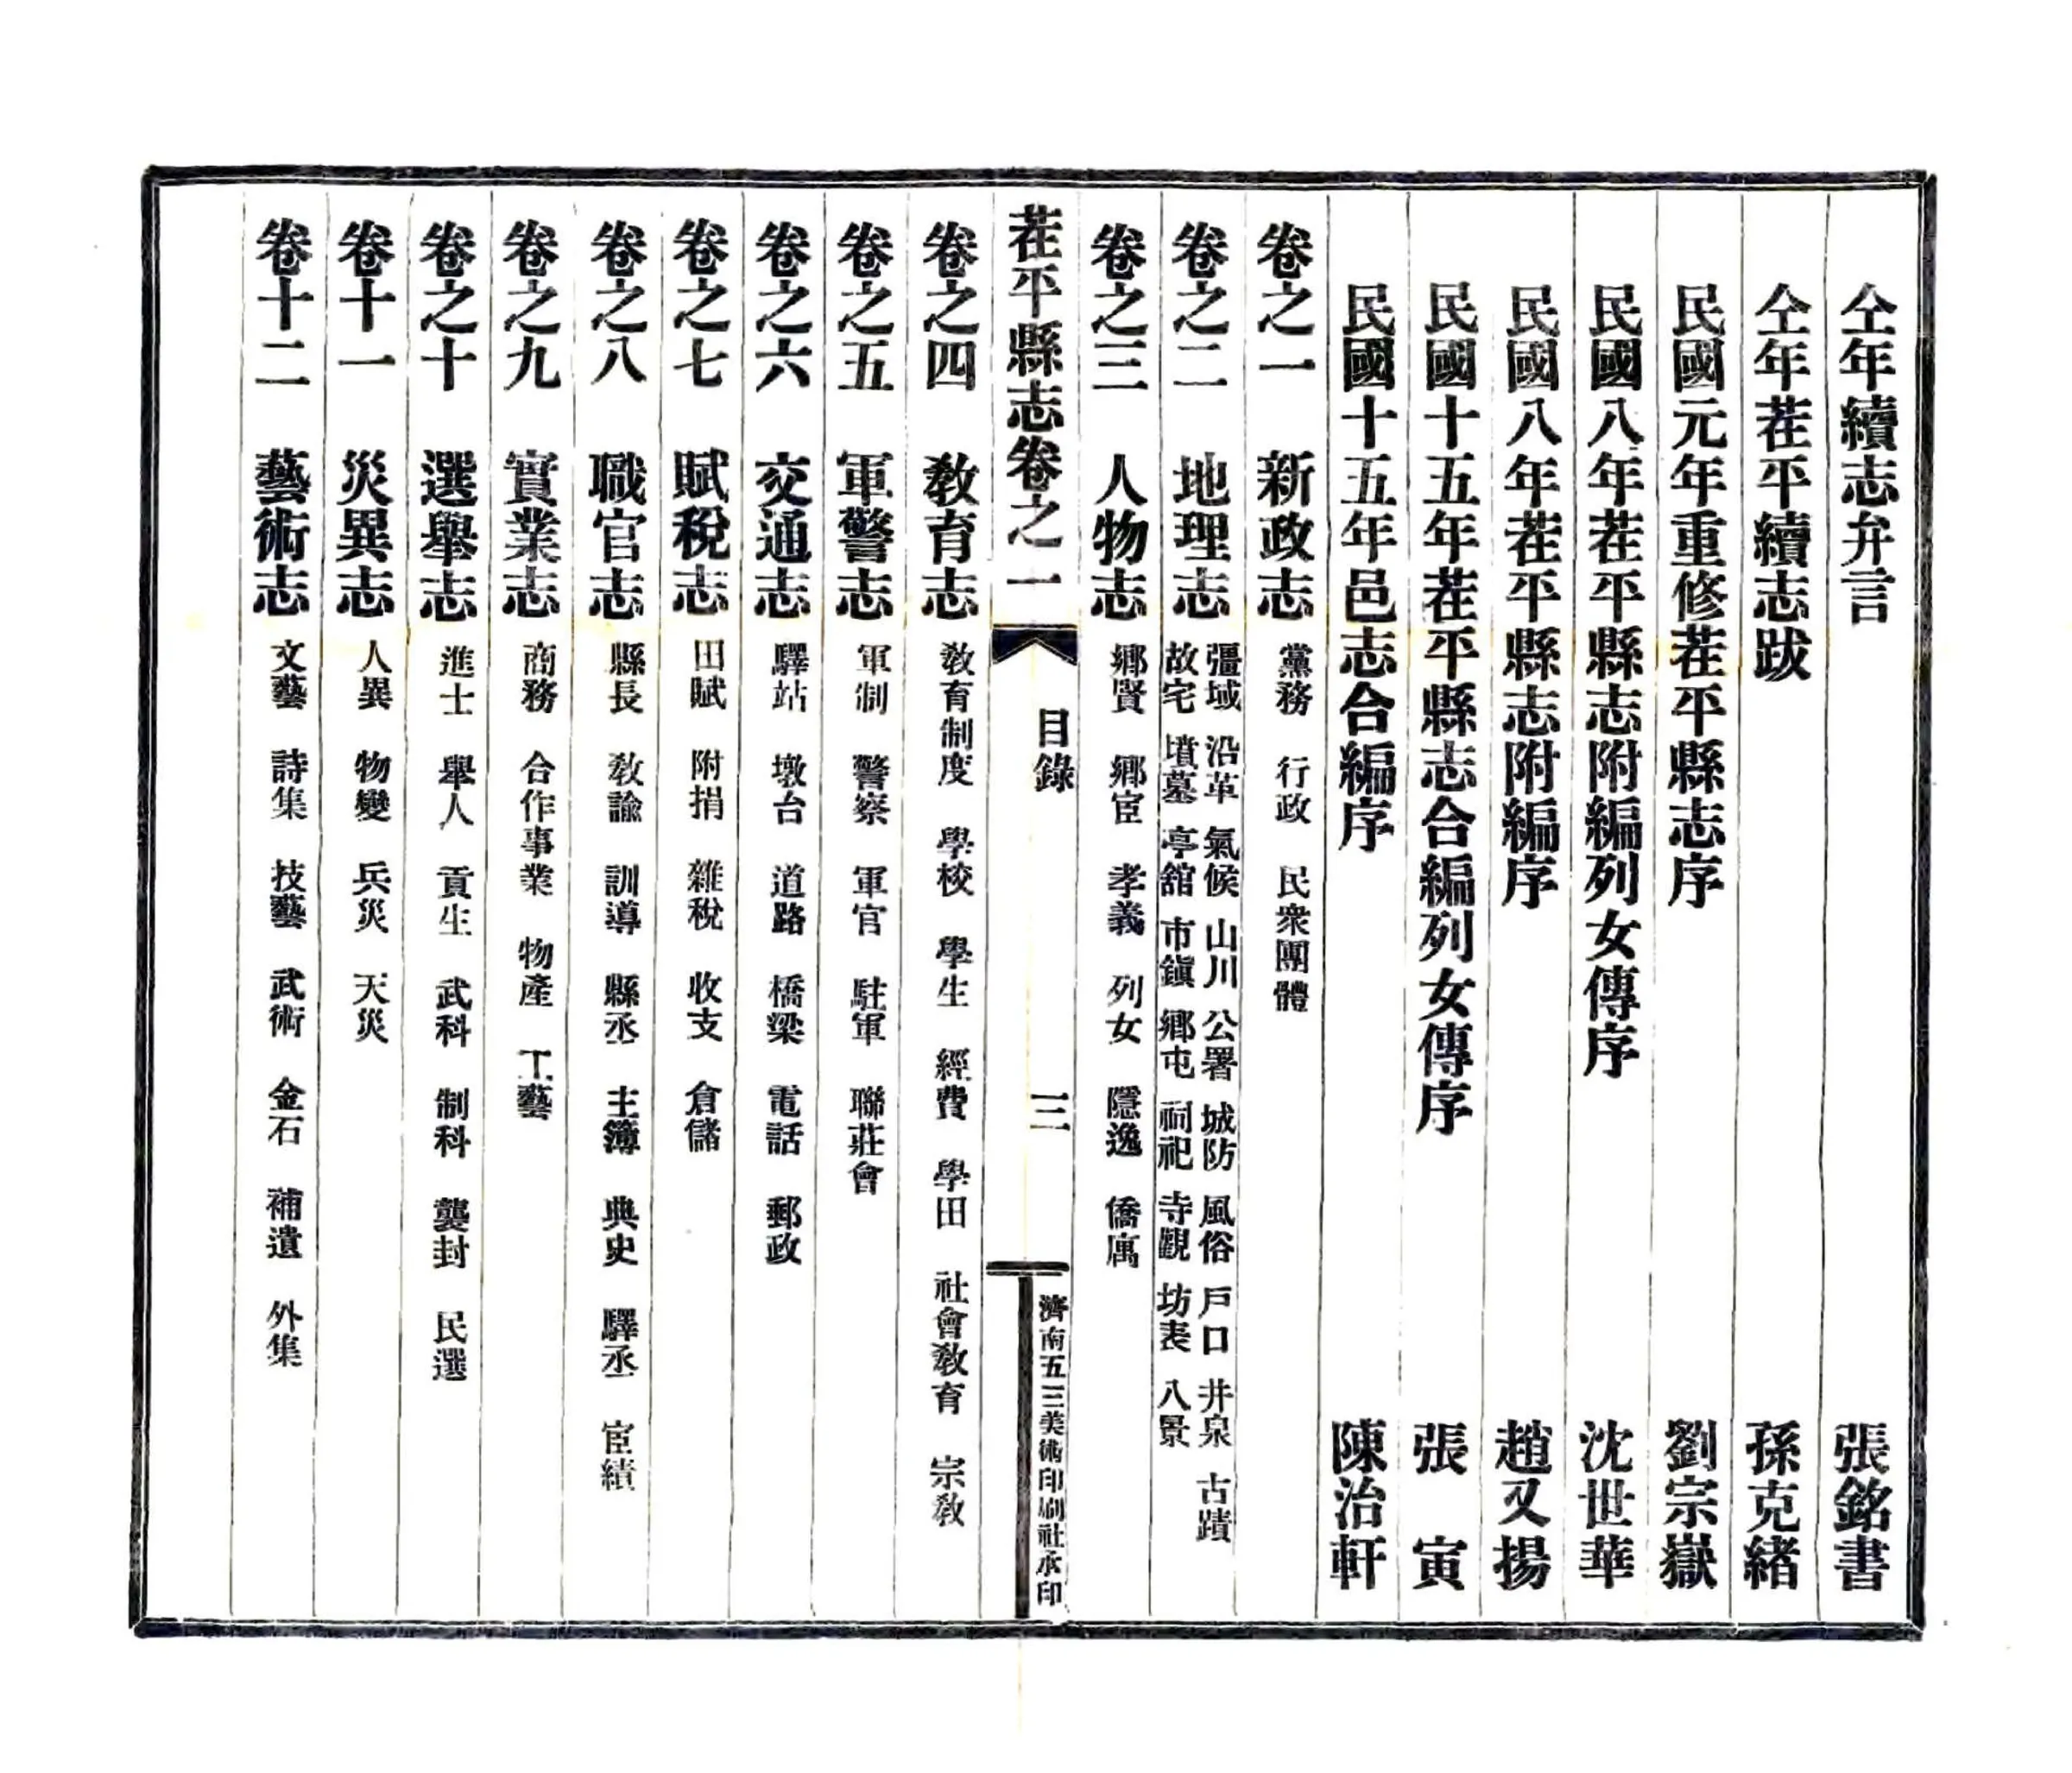 仝年續志弁言 張銘書
仝年茌平續志跋 孫克緒
民國元年重修茌平縣志序 劉宗嶽
民國八年茌平縣志附編列女傳序 沈世華
民國八年茌平縣志附編序 趙又揚
民國十五年茌平縣志合編列女傳序 張 寅
民國十五年邑志合編序 陳治軒
卷之一 新政志 黨務 行政 民衆團體
卷之二 地理志 彊域 沿革 氣候 山川 公署 城防 風俗 戶口 井泉 古蹟
故宅 墳墓 亭舘 市鎭 鄉屯 祠祀 寺觀 坊表 八景
卷之三 人物志 鄉賢 鄉宦 孝義 列女 隱逸 僑寓
茌平縣志卷之一 目錄 三 濟南五三美術印刷社承印
卷之四 敎育志 敎育制度 學校 學生 經費 學田 社會敎育 宗敎
卷之五 軍警志 軍制 警察 軍官 駐軍 聯莊會
卷之六 交通志 驛站 墩台 道路 橋梁 電話 郵政
卷之七 賦稅志 田賦 附捐 雜稅 收支 倉儲
卷之八 職官志 縣長 敎諭 訓導 縣丞 主簿 典史 驛丞 宦績
卷之九 實業志 商務 合作事業 物產 工藝
卷之十 選舉志 進士 舉人 貢生 武科 制科 襲封 民選
卷十一 災異志 人異 物變 兵災 天災
卷十二 藝術志 文藝 詩集 技藝 武術 金石 補遺 外集